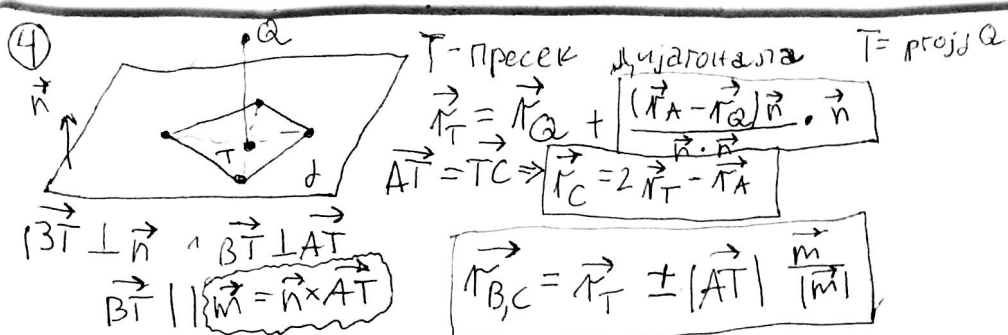 ④ Q
T-пресек дијагонала T = projα Q
n⃗
r⃗_T = r⃗_Q + (r⃗_A - r⃗_Q)n⃗ / n⃗ · n⃗ · n⃗
T α
AT⃗ = TC⃗ ⇒ r⃗_C = 2r⃗_T - r⃗_A
BT⃗ ⊥ n⃗ ∧ BT⃗ ⊥ AT⃗
BT⃗ || m⃗ = n⃗ × AT⃗
r⃗_B,C = r⃗_T ± |AT⃗| m⃗ / |m⃗|